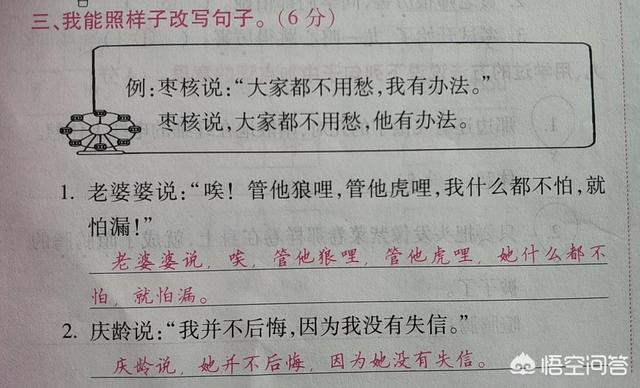 三、我能照样子改写句子。(6分)
例:枣核说:“大家都不用愁,我有办法。”
枣核说,大家都不用愁,他有办法。
1. 老婆婆说:“唉!管他狼哩,管他虎哩,我什么都不怕,就
怕漏!”
老婆婆说,唉,管他狼哩,管他虎哩,她什么都不
怕,就怕漏。
2. 庆龄说:“我并不后悔,因为我没有失信。”
庆龄说,她并不后悔,因为她没有失信。
悟空问答